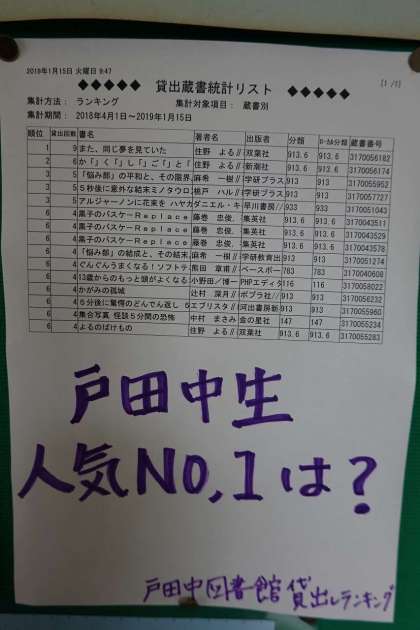 2019年1月15日 火曜日 9:47
[1 /1]
◆◆◆◆◆ 貸出蔵書統計リスト ◆◆◆◆◆
集計方法： ランキング 集計対象項目： 蔵書別
集計期間： 2018年4月1日～2019年1月15日
順位 貸出回数 書名 著者名 出版者 分類 ローカル分類 蔵書番号
1 9 また、同じ夢を見ていた 住野 よる// 双葉社 913.6 913.6 3170056182
2 6 か「」く「」し「」ご「」と「 住野 よる// 新潮社 913.6 913.6 3170056174
3 5 「悩み部」の平和と、その限界。 麻希 一樹// 学研プラス 913 913 3170055952
3 5 5秒後に意外な結末ミノタウロ 桃戸 ハル// 学研プラス 913 913 3170057727
3 5 アルジャーノンに花束を ハヤカ ダニエル・キ 早川書房// 933 933 3170051043
6 4 黒子のバスケーＲｅｐｌａｃｅ 藤巻 忠俊, 集英社 913.6 913.6 3170043511
6 4 黒子のバスケーＲｅｐｌａｃｅ 藤巻 忠俊, 集英社 913.6 913.6 3170043529
6 4 黒子のバスケーＲｅｐｌａｃｅ 藤巻 忠俊, 集英社 913.6 913.6 3170043578
6 4 「悩み部」の結成と、その結末。 麻希 一樹// 学研教育出 913 913 3170051274
6 4 ぐんぐんうまくなる！ソフトテ 熊田 章甫// ベースボー 783 783 3170040608
6 4 13歳からのもっと頭がよくなる 小野田／博一 PHPエディタ 116 116 3170058022
6 4 かがみの孤城 辻村 深月// ポプラ社// 913 913 3170056232
6 4 5分後に驚愕のどんでん返し 5 エブリスタ// 河出書房新 913 913 3170055960
6 4 集合写真 怪談5分間の恐怖 中村 まさみ 金の星社 147 147 3170055234
6 4 よるのばけもの 住野 よる// 双葉社 913.6 913.6 3170055283
戸田中生
人気NO,1は？
戸田中図書館 貸出しランキング